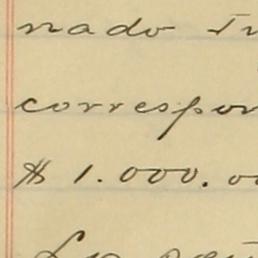 nado In
correspon
$ 1.000.00